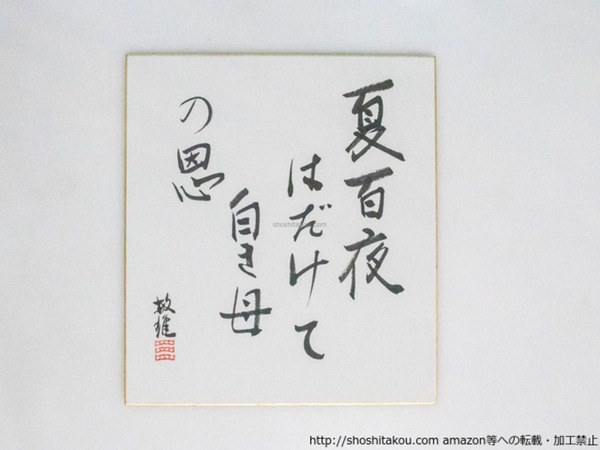 夏百夜
はだけて
白き母
の恩
敏雄
shoshitakou.com
http://shoshitakou.com amazon等への転載・加工禁止